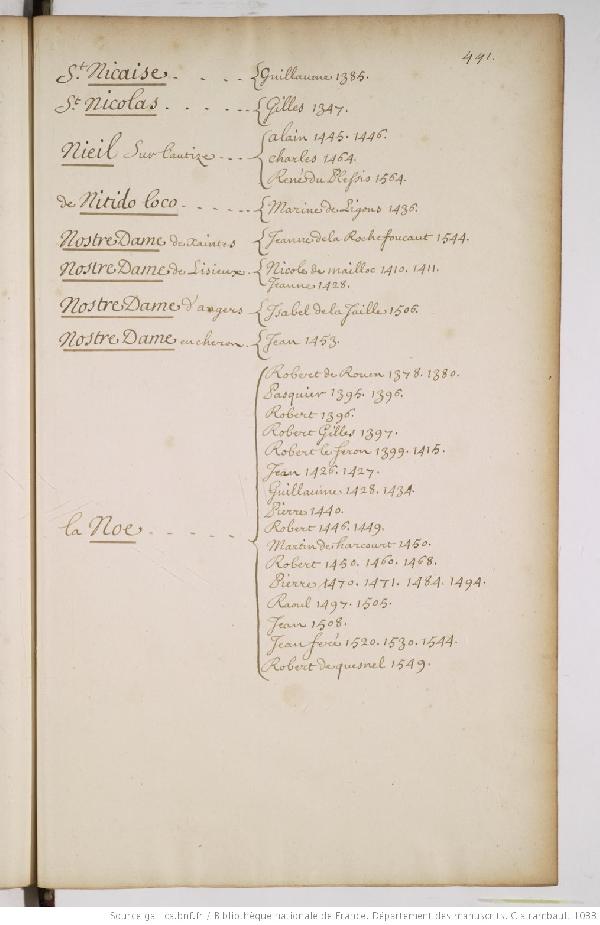 441.
St. Nicaise. - - - - {Guillaume 1385.
St Nicolas. - - - - - {Gilles 1347.
{alain 1445. 1446.
Nieil Sur Lautize - - - charles 1464.
René du Plessis 1564.
de Nitido loco - - - - - - {Marine de Ligons 1436.
Nostre Dame de Xaintes {Jeanne de la Rochefoucaut 1544.
Nostre Dame de Lisieux. {Nicole de mailloc 1410. 1411.
Jeanne 1428.
Nostre Dame d'angers {Isabel de la Jaille 1506.
Nostre Dame en cheron. {Jean 1453.
{Robert de Rouen 1378. 1380.
Pasquier 1395. 1396.
Robert 1396.
Robert Gilles 1397.
Robert le feron 1399. 1415.
Jean 1426. 1427.
Guillaume 1428. 1434.
Pierre 1440.
la Noe - - - - - Robert 1446. 1449.
Martin de harcourt 1450.
Robert 1450. 1460. 1468.
Pierre 1470. 1471. 1484. 1494.
Raoul 1497. 1505.
Jean 1508.
Jean feré 1520. 1530. 1544.
Robert de quesnel 1549.
Source gallica.bnf.fr / Bibliothèque nationale de France. Département des manuscrits. Clairambault. 1033